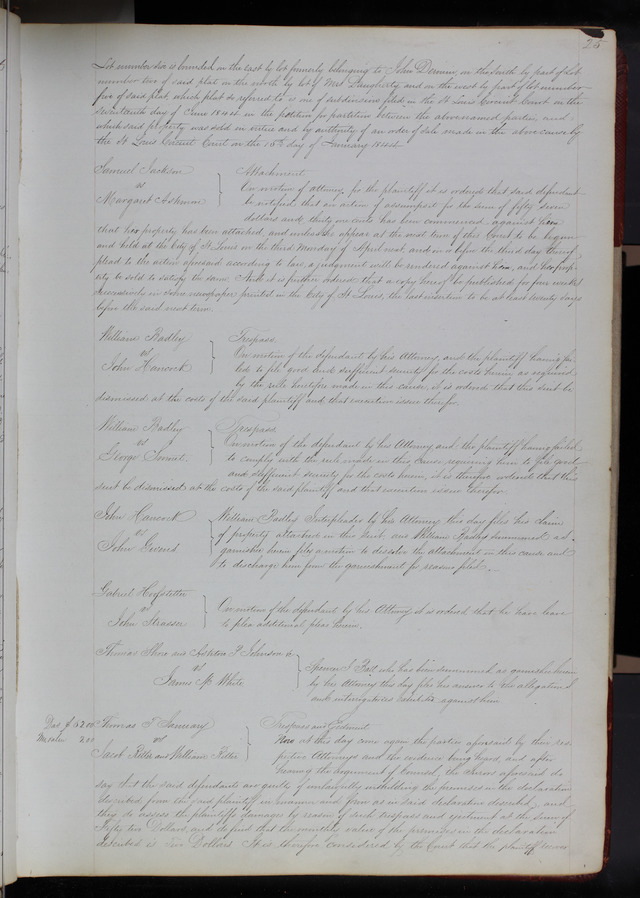 25
Lot number six is bounded on the east by lot formerly belonging to John Deromer, on the South by part of Lot
number two of said plat on the north by lot of Mrs Daugherty and on the west by part of lot number
five of said plat, which plat so referred to is one of subdivision filed in the St Louis Circuit Court on the
seventeenth day of June 1844 in the petition for partition between the above named parties and
which said property was sold in virtue and by authority of an order of sale made in the above cause by
the St Louis Circuit Court on the 15th day of January 1844
Samuel Jackson
vs
Margaret
Attachment
On motion of attorney for the plaintiff it is ordered that said defendant
be notified, that an action of assumpsit for the sum of fifty seven
dollars and thirty cents has been commenced against her
that her property has been attached, and unless she appear at the next term of this Court to be begun
and held at the City of St Louis on the third Monday of April next, and on or before the third day thereof
plead to the action aforesaid according to law, a judgment will be rendered against her, and her prop-
erty be sold to satisfy the same. And it is further ordered that a copy hereof be published for four weeks
successively in some newspaper printed in the City of St Louis, the last insertion to be at least twenty days
before the said next term.
William Radley
vs
John Hancock
Trespass
On motion of the defendant by his Attorney, and the plaintiff having fai
led to file good and sufficient security for the costs herein as required
by the rule heretofore made in this cause, it is ordered that this suit be
dismissed at the costs of the said plaintiff and that execution issue therefor.
William Radley
vs
George
Trespass
On motion of the defendant by his Attorney and the plaintiff having failed
to comply with the rule made in this cause requiring him to file good
and sufficient security for the costs herein, it is therefore ordered that this
suit be dismissed at the costs of the said plaintiff and that execution issue therefor
John Hancock
vs
John
William Radley Interpleader by his Attorney this day files his claim
of property attached in this suit, and William Radley summoned as
garnishee herein files a motion to dissolve the attachment in this cause and
to discharge him from the garnishment for reasons filed.
Gabriel Hofstetter
vs
John Strasser
On motion of the defendant by his Attorney it is ordered that he have leave
to plea additional pleas herein.
Thomas Shore and Ashton P Johnson &c
vs
James M. White
Spencer J Ball who has been summoned as garnishee herein
by his Attorney this day files his answer to the allegations
and interrogatories exhibited against him
Dam $52.00
Mo value 2.00
Thomas T January
vs
Jacob Ritter and William Ritter
Trespass and Ejectment
Now at this day come again the parties aforesaid by their res
pective Attorneys and the evidence being heard, and after
hearing the argument of Counsel, the Jurors aforesaid do
say that the said defendants are guilty of unlawfully withholding the premises in the declaration
described from the said plaintiff in manner and form as in said declaration described, and
they do assess the plaintiffs damages by reason of such trespass and ejectment at the sum of
Fifty two Dollars, and do find that the monthly value of the premises in the declaration
described is Two Dollars It is therefore considered by the Court that the plaintiff recover